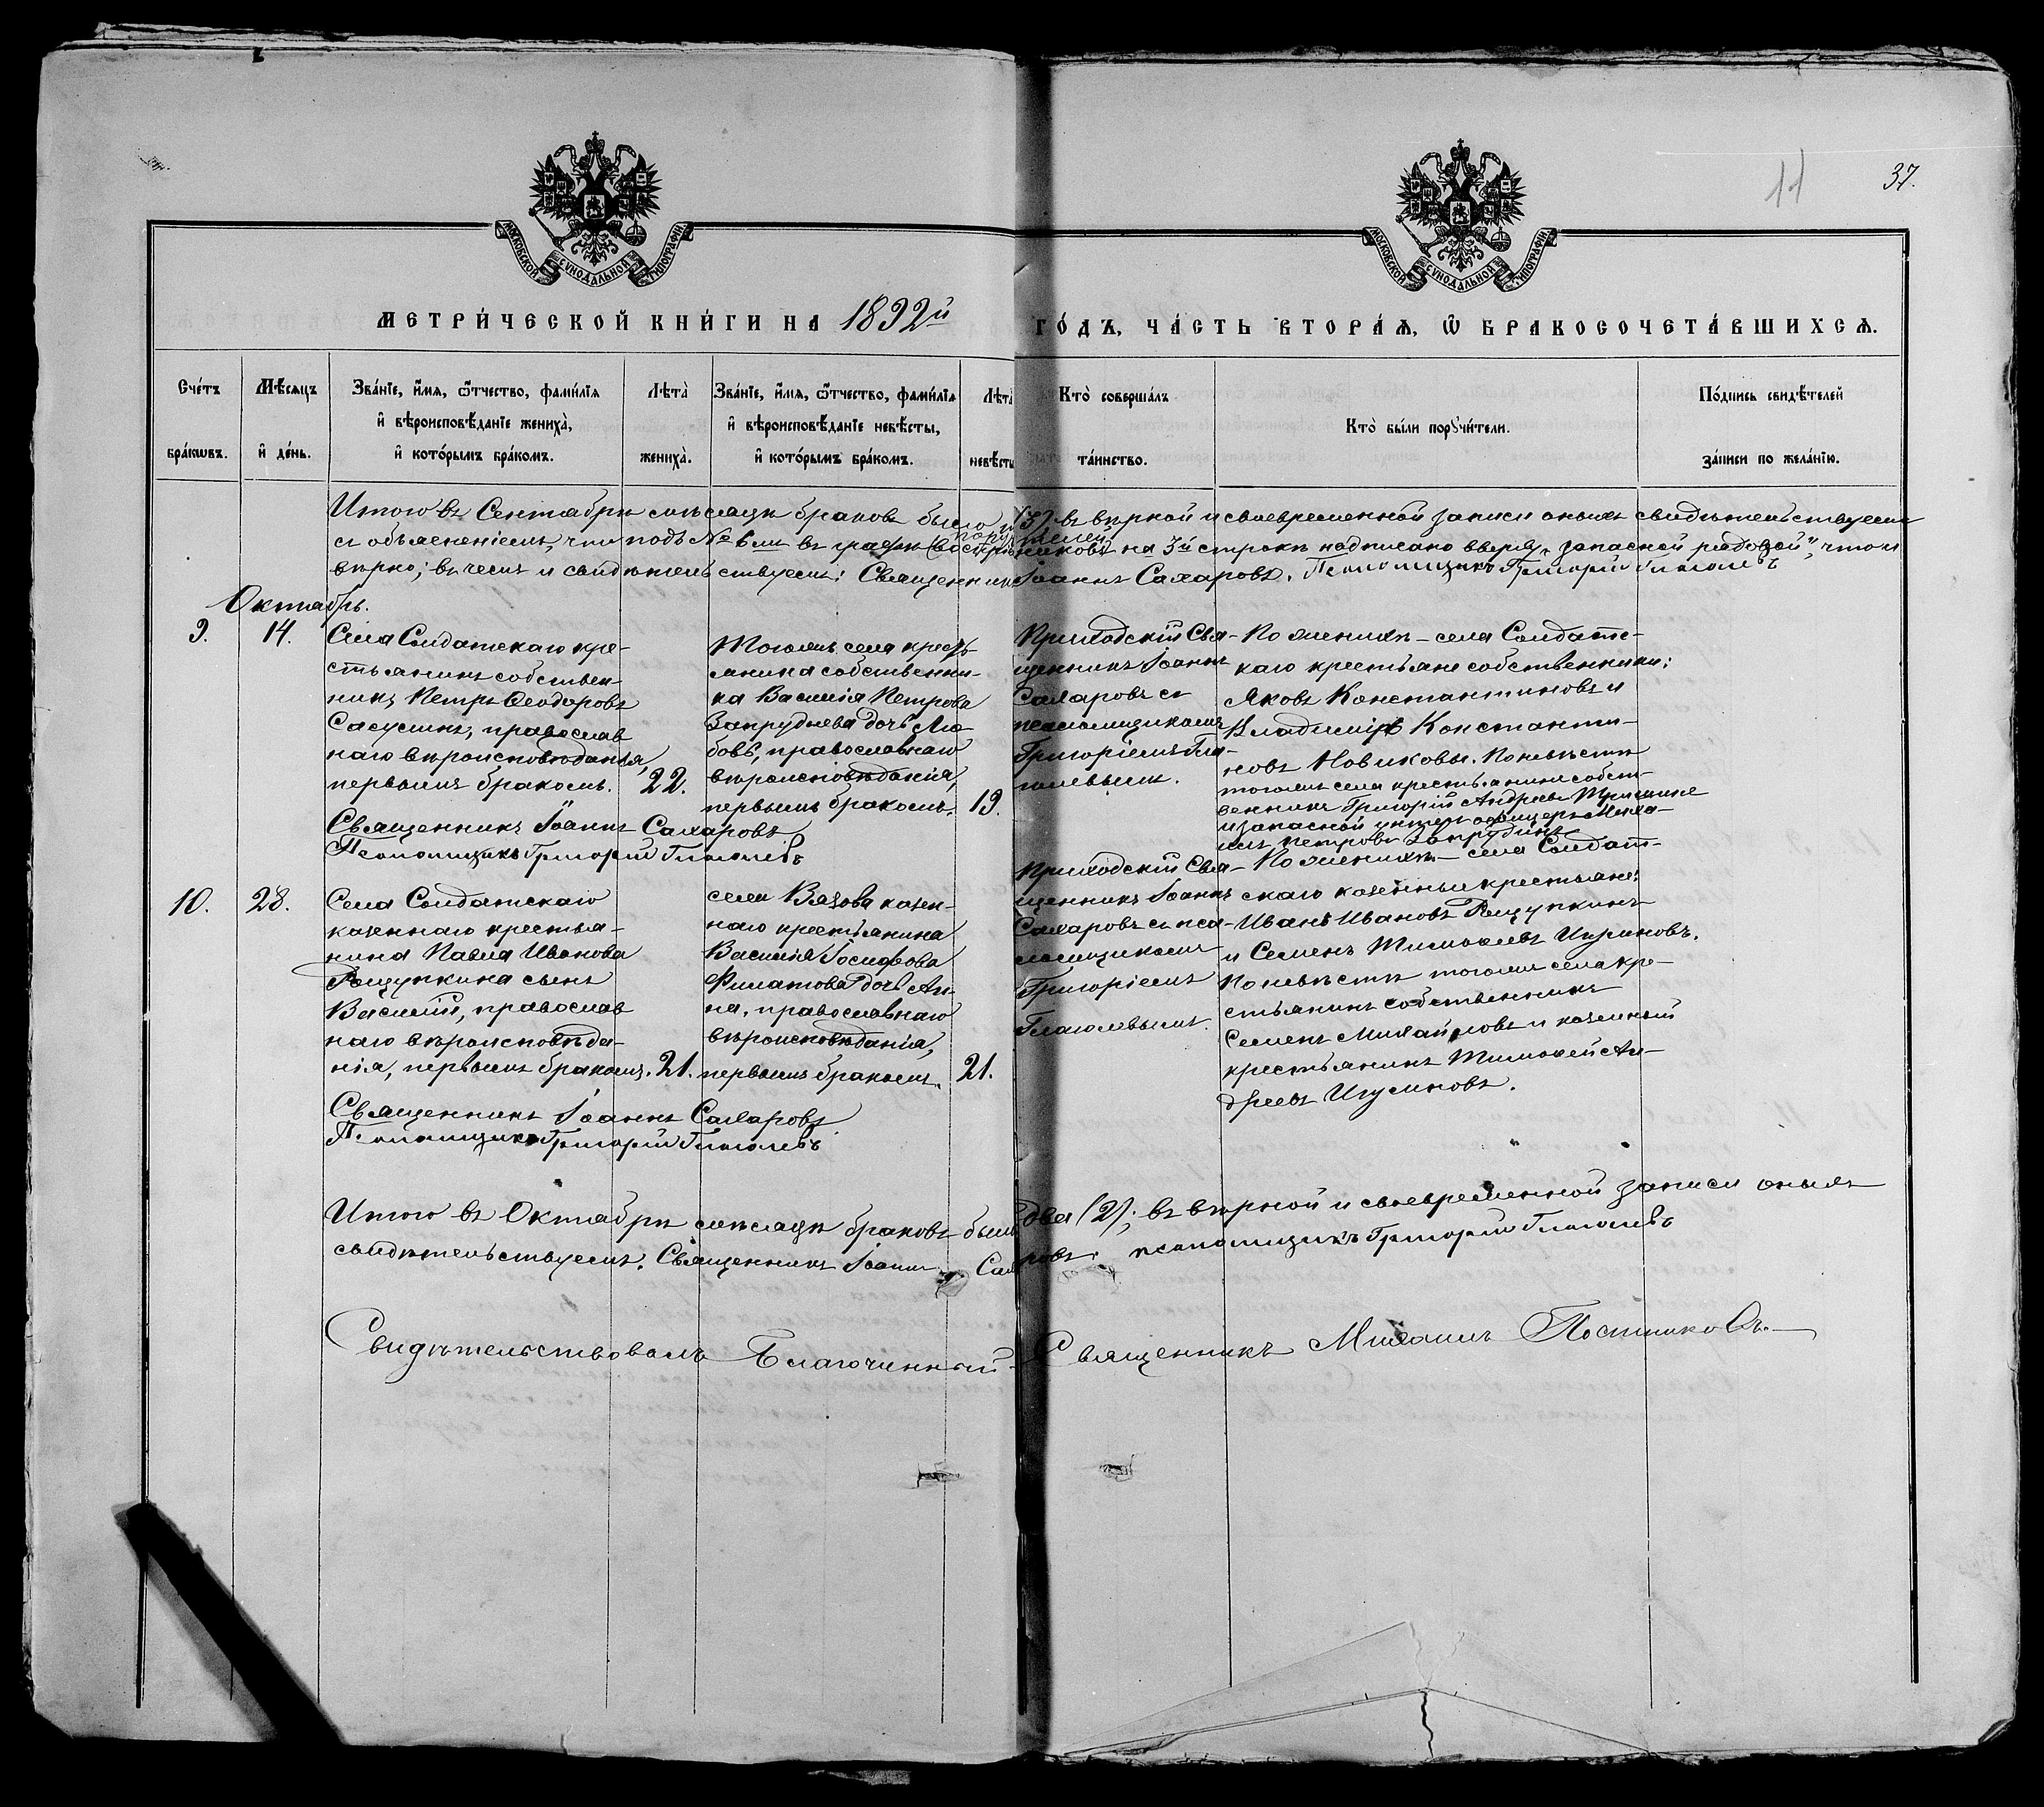 11
37.
МОСКОВСКОЙ СУНОДАЛЬНОЙ ТИПОГРАФІИ
МОСКОВСКОЙ СУНОДАЛЬНОЙ ТИПОГРАФІИ
МЕТРИ́ЧЕСКОЙ КНИ́ГИ НА 1892й
ГО́ДЪ, ЧА́СТЬ ВТОРА́Ѧ, Ѡ БРАКОСОЧЕТА́ВШИХСѦ.
Сче́тъ
бра́кѡвъ.
Мѣ́сяцъ
и҆ де́нь.
Зва́нїе, и҆́мѧ, ѻ҆́тчество, фами́лїѧ
и҆ вѣроисповѣ́данїе женихà,
и҆ кото́рымъ бра́комъ.
Лѣ́тà
женихà.
Зва́нїе, и҆́мѧ, ѻ҆́тчество, фами́лїѧ
и҆ вѣроисповѣ́данїе невѣ́сты,
и҆ кото́рымъ бра́комъ.
Лѣ́тà
невѣ́сты
Ктò соверша́лъ
та́инство.
Ктò бы́ли порꙋчи́тели.
По́дпись свидѣ́телей
за́писи по жела́нїю.
Итого въ Сентябрѣ мѣсяцѣ браковъ было (3) въ вѣрной и своевременной записи оныхъ свидѣтельствуемъ
съ объясненіемъ, что подъ № 6мъ въ графѣ на 3й строкѣ надписано вверху „запасной рядовой", что и
вѣрно; въ чемъ и свидѣтельствуемъ: Священникъ Іоаннъ Сахаровъ. Псаломщикъ Григорій Глаголевъ
Октябрь.
9.
14.
Села Солдатскаго кре-
стьянинъ собствен-
никъ Петръ Ѳеодоровъ
Сасусинъ, православ
наго вѣроисповѣданія,
первымъ бракомъ.
22.
Тогожъ села кресть-
янина собственни-
ка Василія Петрова
Запруднева дочь Лю-
бовь, православнаго
вѣроисповѣданія,
первымъ бракомъ.
19.
Приходскій Свя-
щенникъ Іоаннъ
Сахаровъ съ
псаломщикомъ
Григоріемъ Гла-
голевымъ.
По женихѣ – села Солдатс-
каго крестьяне собственники:
Яковъ Константиновъ и
Владиміръ Константи-
новъ Новиковы. По невѣстѣ
тогожъ села крестьянинъ собст-
венникъ Григорій Андреевъ
и запасной унтеръ офицеръ Миха-
илъ Петровъ
Священникъ Іоаннъ Сахаровъ
Псаломщикъ Григорій Глаголевъ
10.
28.
Села Солдатскаго
казеннаго крестья-
нина Павла Иванова
Рощупкина сынъ
Василій, православ
наго вѣроисповѣда-
нія, первымъ бракомъ.
21.
села Вязова казен-
наго крестьянина
Василія Іосифова
Филатова дочь Ан-
на, православнаго
вѣроисповѣданія,
первымъ бракомъ.
21.
Приходскій Свя-
щенникъ Іоаннъ
Сахаровъ съ пса-
ломщикомъ
Григоріемъ
Глаголевымъ.
По женихѣ – села Солдат-
скаго казенные крестьяне:
Иванъ Ивановъ Рощупкинъ
и Семенъ Тимоѳеевъ Игуминовъ.
По невѣстѣ тогожъ села кре-
стьянинъ собственникъ
Семенъ Михайловъ и казенный
крестьянинъ Тимоѳей Ан-
дреевъ Игуминовъ.
Священникъ Іоаннъ Сахаровъ
Псаломщикъ Григорій Глаголевъ
Итого въ Октябрѣ мѣсяцѣ браковъ было два (2); въ вѣрной и своевременной записи оныхъ
свидѣтельствуемъ. Священникъ Іоаннъ Сахаровъ. псаломщикъ Григорій Глаголевъ
Свидѣтельствовалъ Благочинный Священникъ Михаилъ Постниковъ.